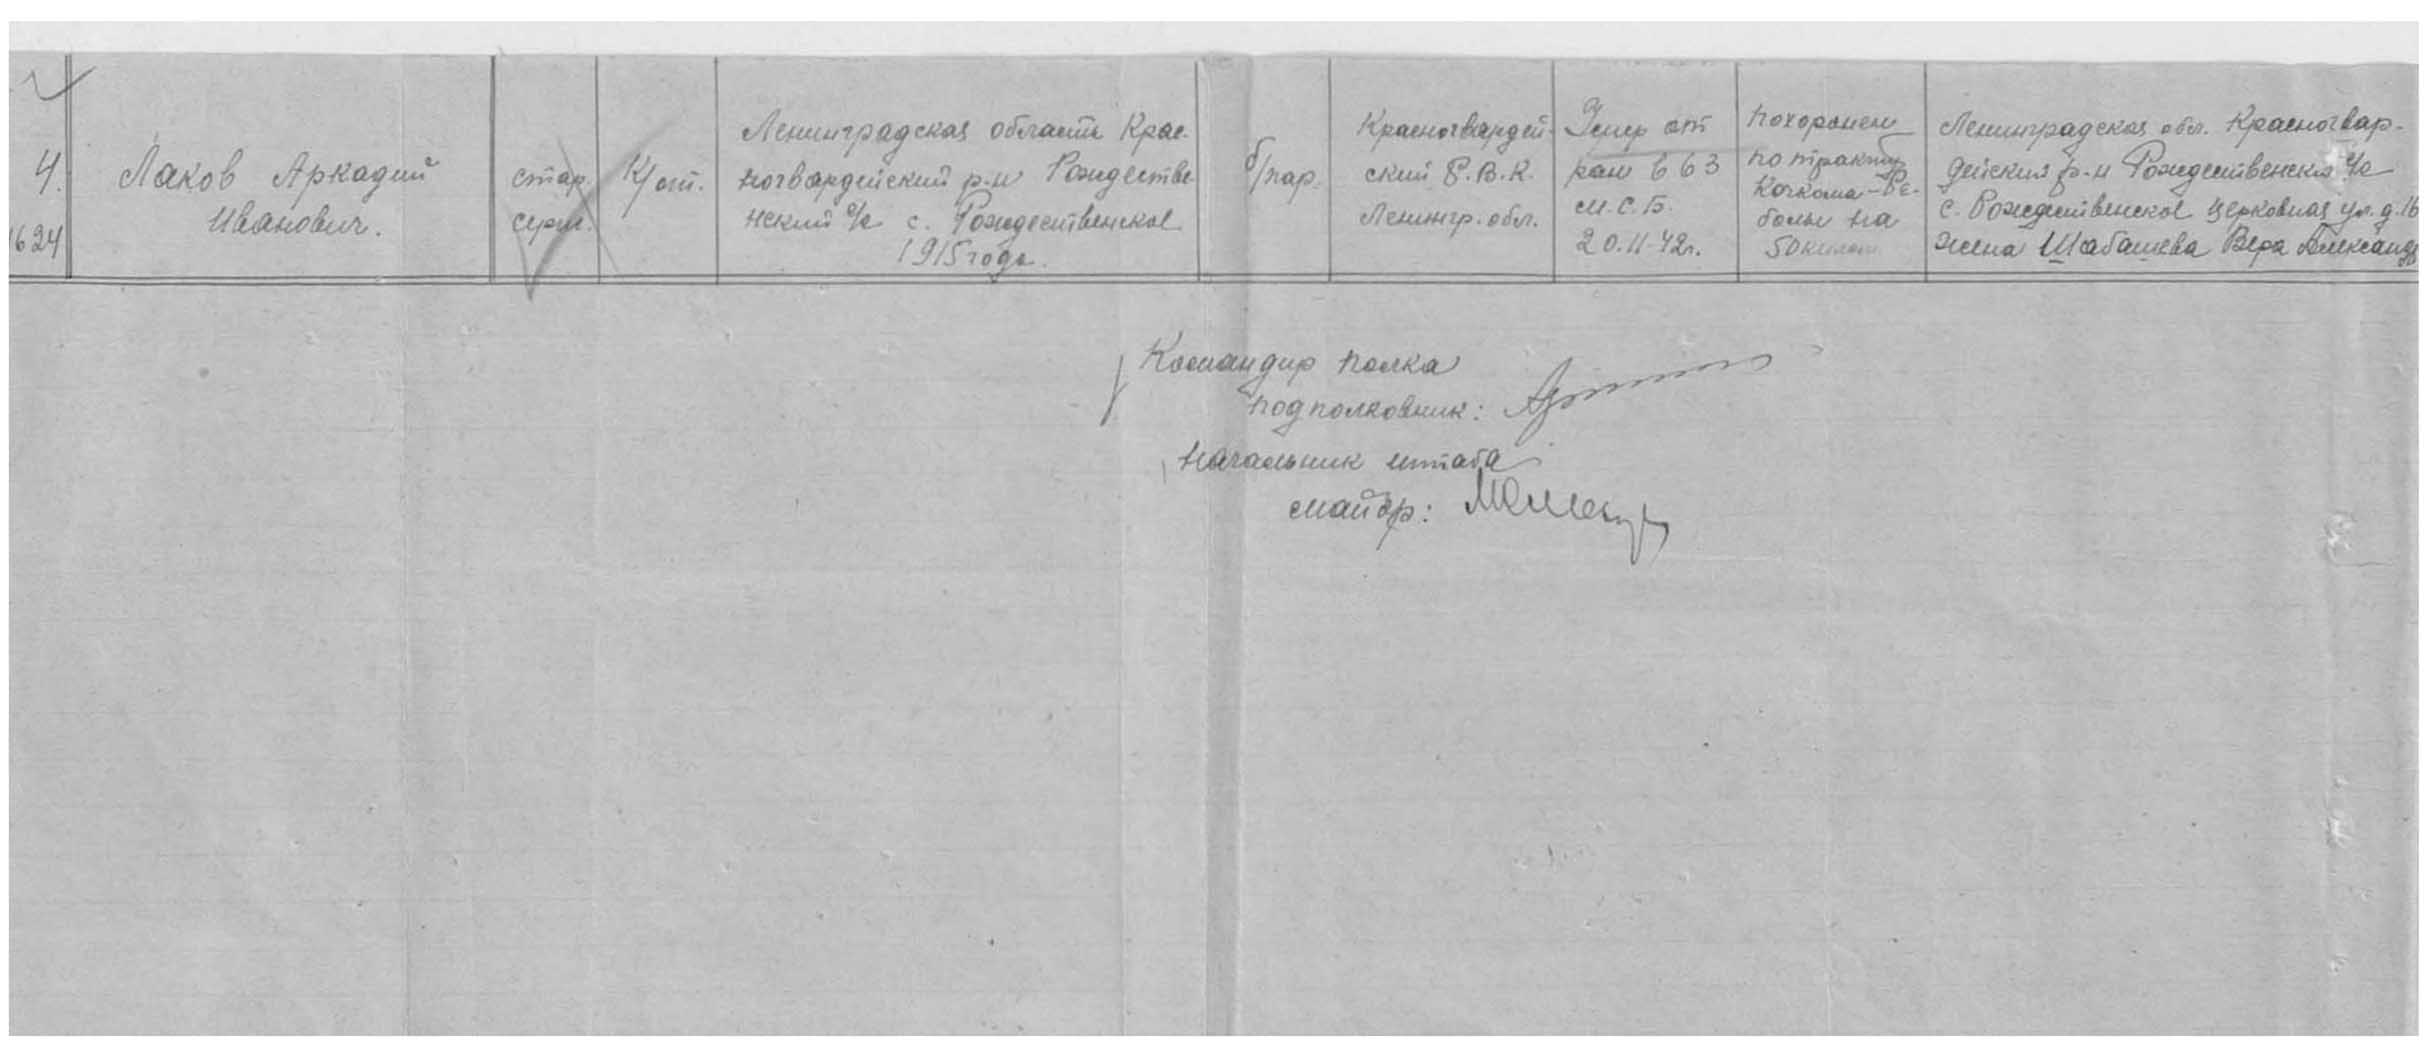 4.
1624
Лаков Аркадий
Иванович.
стар.
серж.
К/от.
Ленинградская область Крас-
ногвардейский р-н Рождестве-
нский с/с с. Рождественское
1915 года.
б/пар.
Красногвардей-
ский Р.В.К.
Ленингр. обл.
Умер от
ран в 63
м.с.б.
20.11.42г.
похоронен
по тракту
Кочкома-Ре-
болы на
50 килом
Ленинградская обл. Красногвар-
дейский р-н Рождественский с/с
с. Рождественское Церковная ул. д.16
жена Шабашева Вера Александр
Командир полка
подполковник:
Начальник штаба
майор: